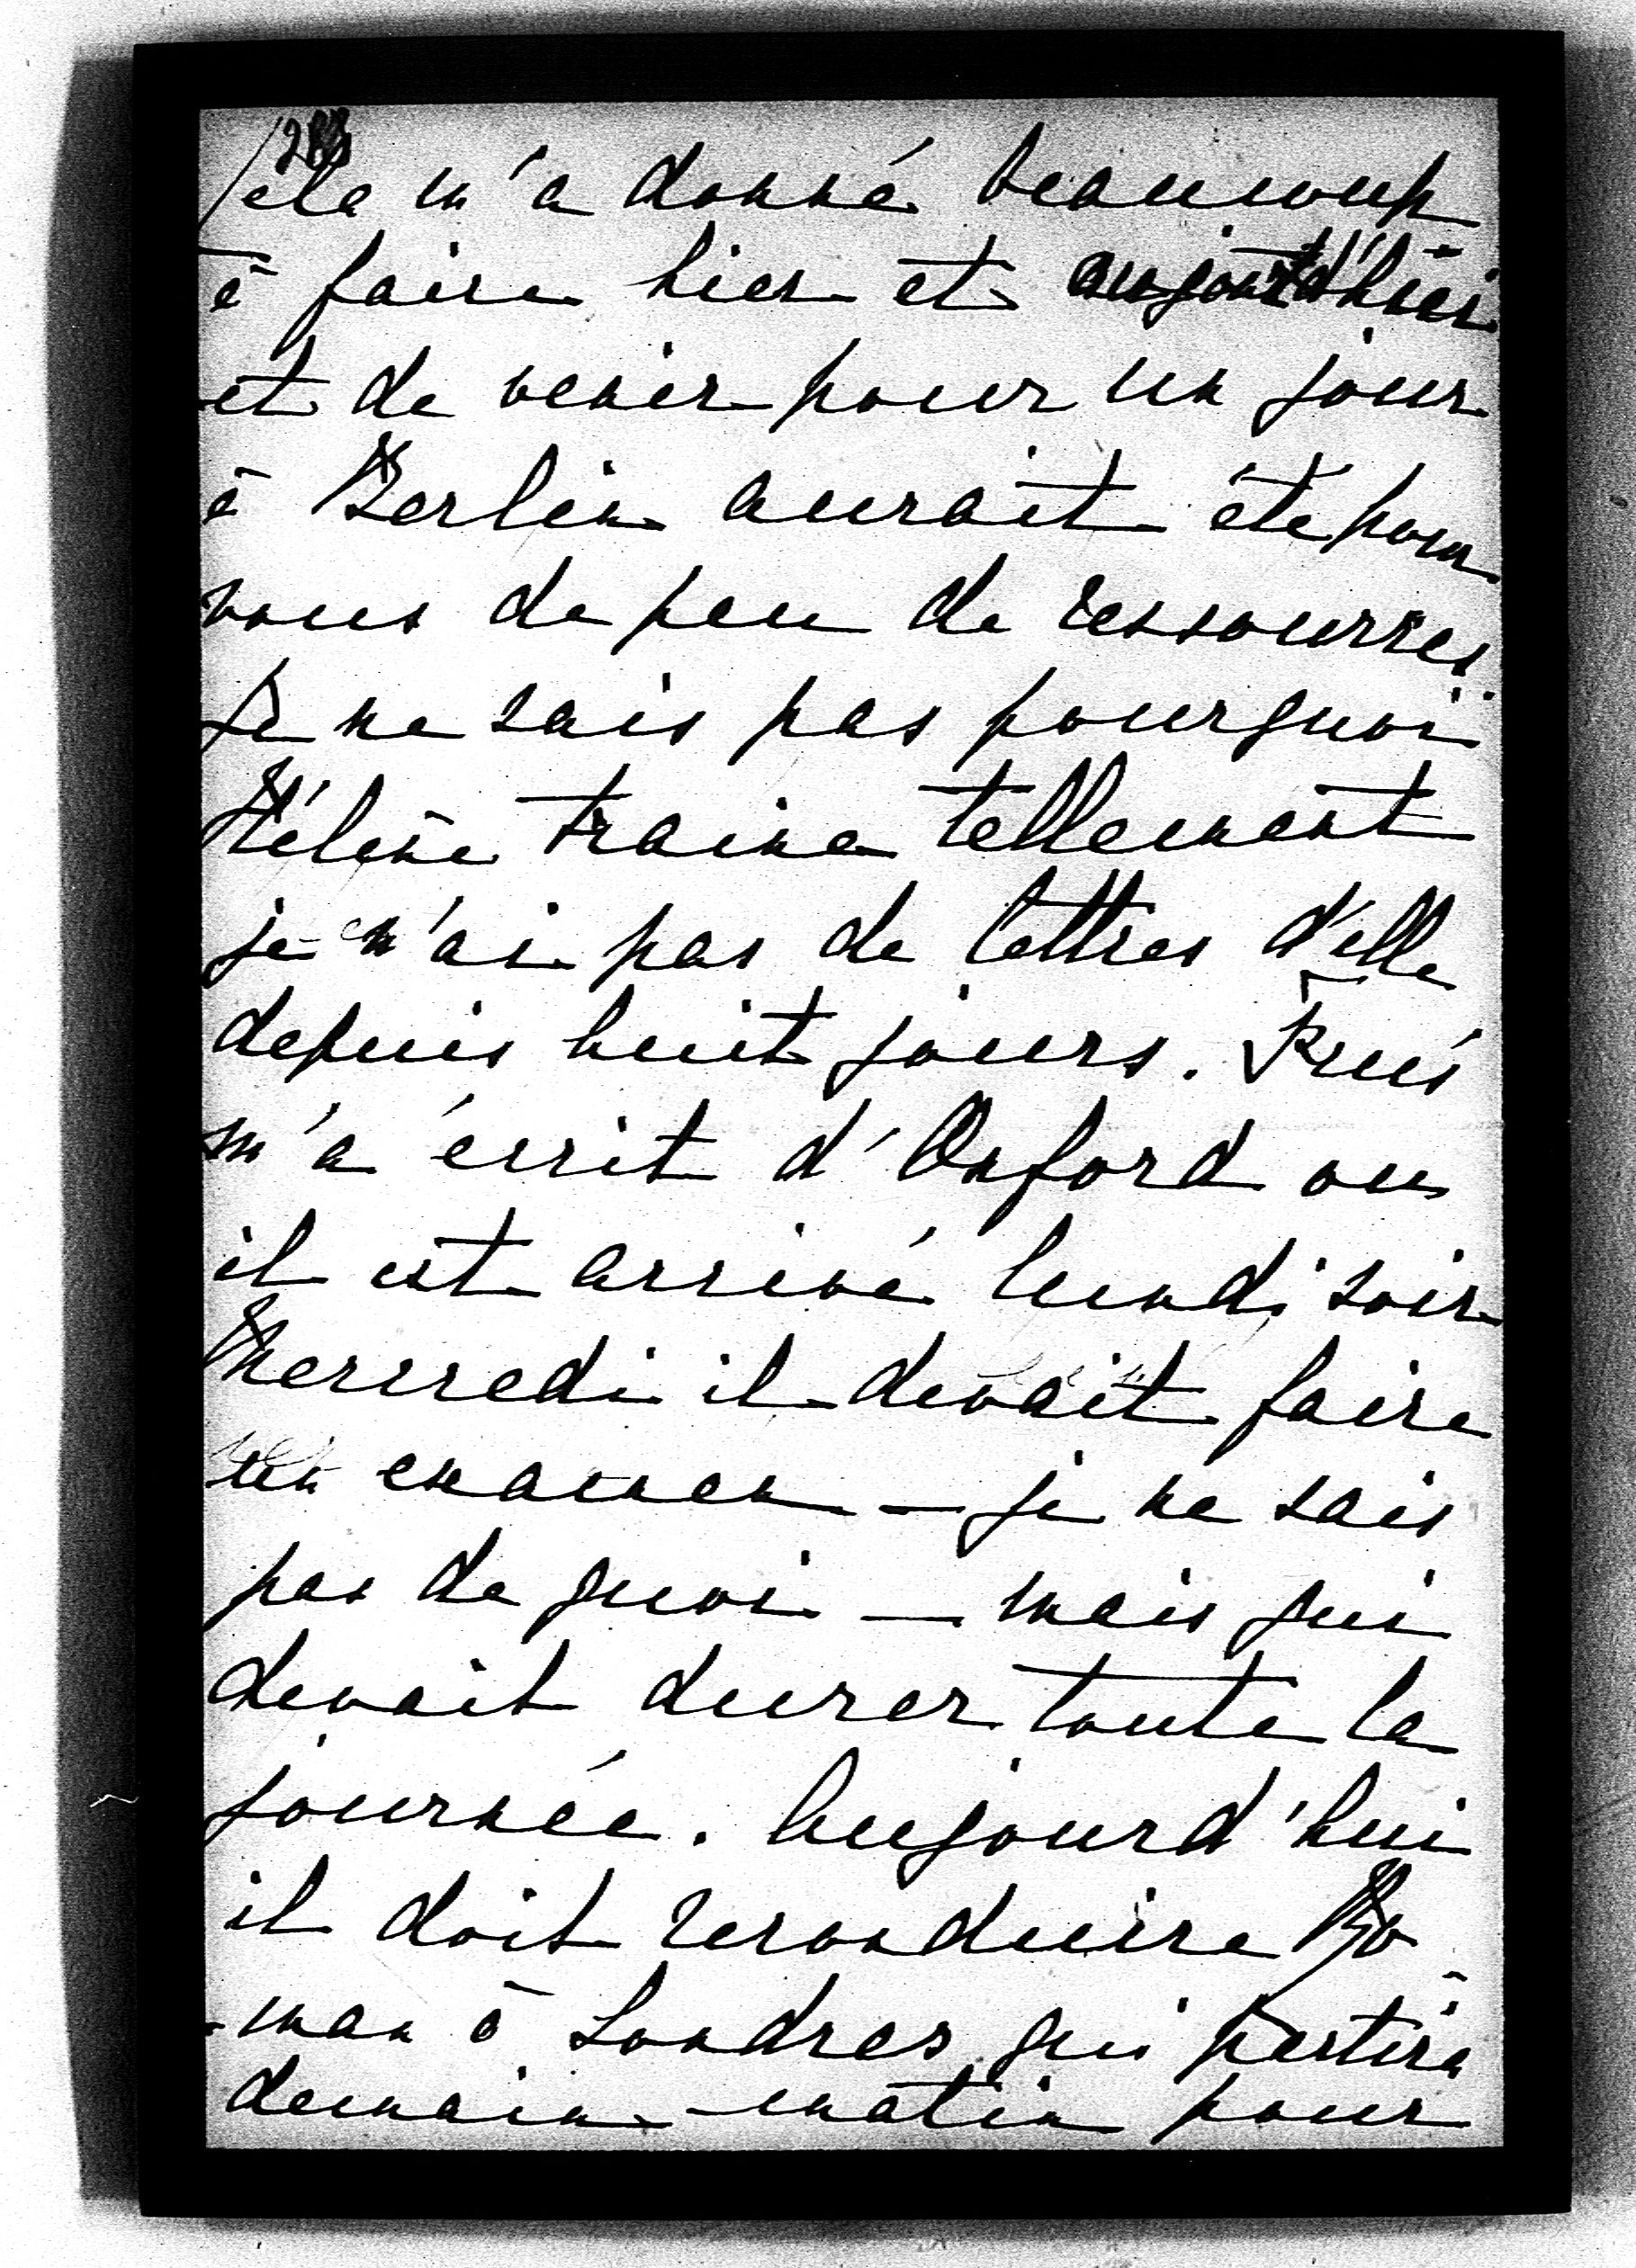 Cela m'a donné beaucoup
à faire hier et aujourd'hui
et de venir pour un jour
à Berlin aurait été pour
vous de peu de ressources.
Je ne sais pas pourquoi
Hélène traine tellement
je n'ai pas de lettres d'elle
depuis huit jours.
m'a écrit d'Oxford ou
il est arrivé lundi soir
Mercredi il devait faire
un examen — je ne sais
pas de quoi — mais qui
devait durer toute la
journée. Aujourd'hui
il doit reconduire Ro-
-man à Londres qui partira
demain-matin pour